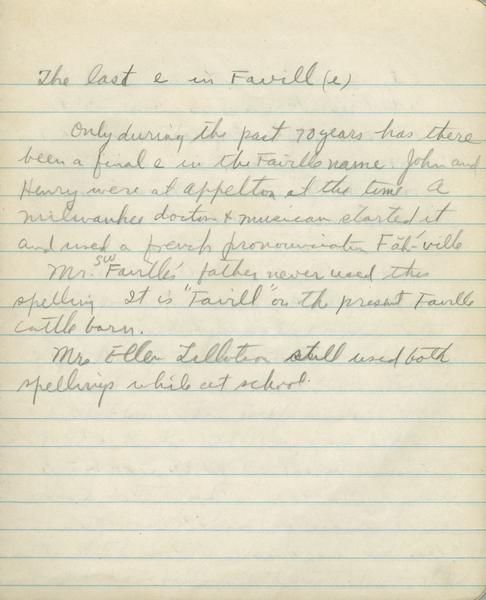 The last e in Favill(e)
Only during the past 70 years has there
been a final e in the Faville name. John and
Henry were at appelton at the time. A
milwaukee doctor & musican started it
and used a french pronounciation Făh-ville
Mr. SW Faville's father never used this
spelling. It is "Favill" on the present Faville
cattle barn.
Mrs Ellen Tillotson still used both
spellings while at school.